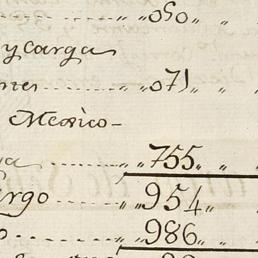 „050„ „
y carga
nes „071„ „
Mexico
a „755„ „
argo „954„
o „986„ „